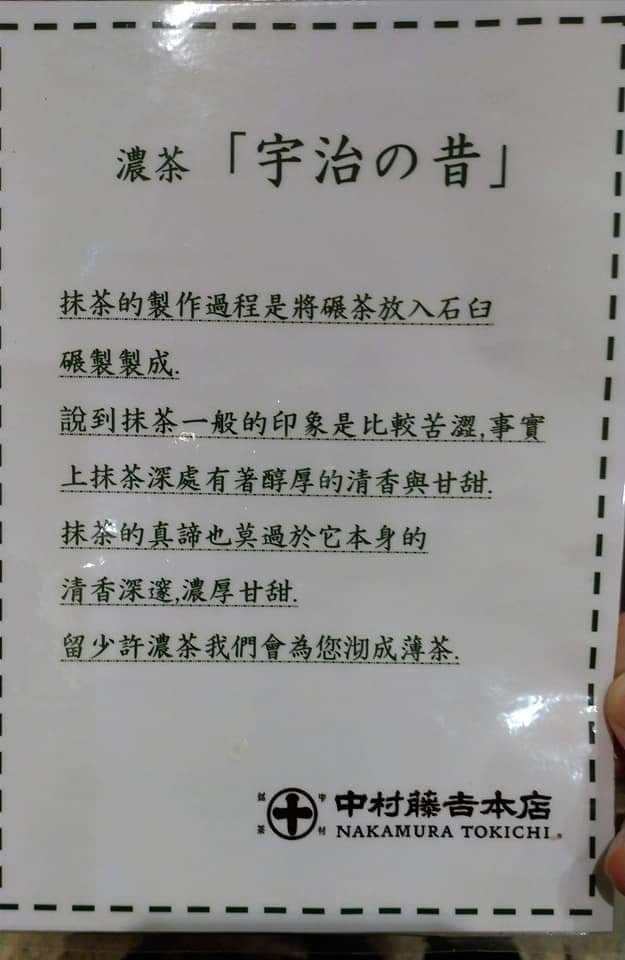 濃茶「宇治の昔」
抹茶的製作過程是將碾茶放入石臼
碾製製成.
說到抹茶一般的印象是比較苦澀,事實
上抹茶深處有著醇厚的清香與甘甜.
抹茶的真諦也莫過於它本身的
清香深邃,濃厚甘甜.
留少許濃茶我們會為您沏成薄茶.
中村藤吉本店
NAKAMURA TOKICHI